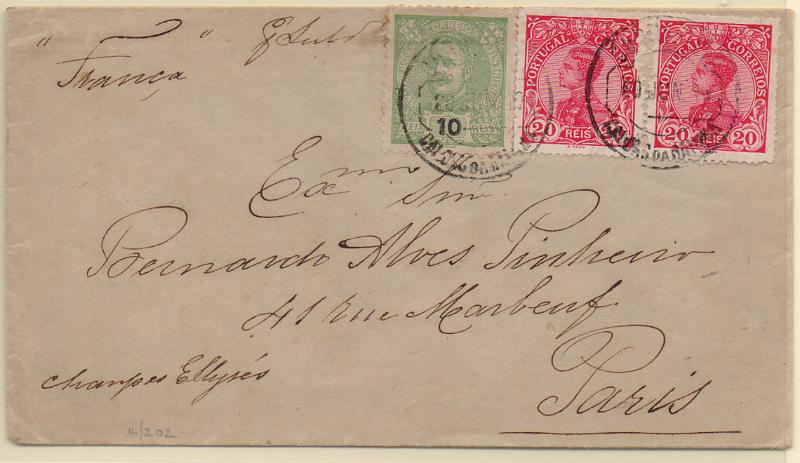 " França "
CORREIOS
10 REIS
PORTUGAL CORREIOS
20 REIS
PORTUGAL CORREIOS
20 REIS 20
Exmo Snr
Bernardo Alves Pinheiro
41 rue Marbeuf.
Champes Ellysés
Paris
4/202